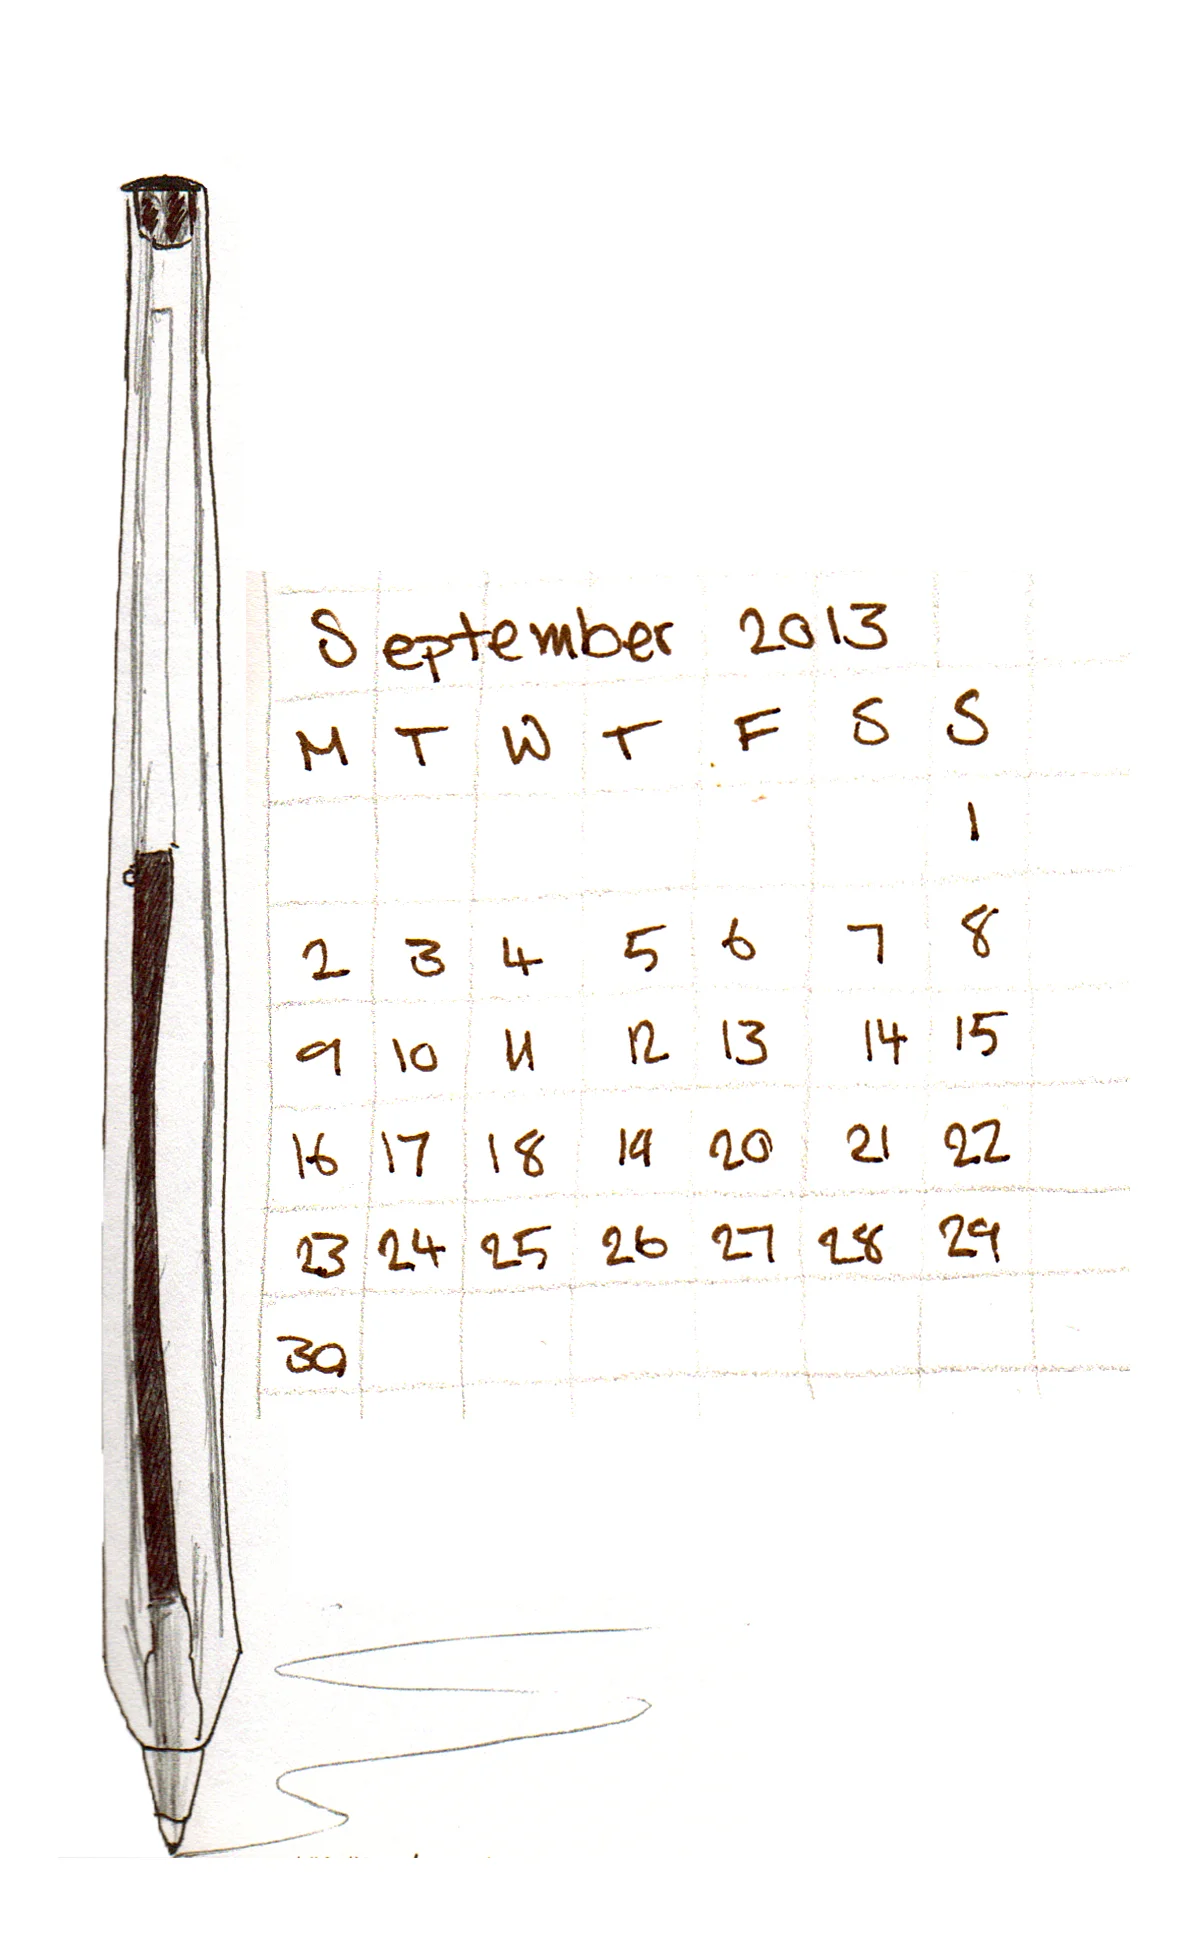 September 2013
M T W T F S S
1
2 3 4 5 6 7 8
9 10 11 12 13 14 15
16 17 18 19 20 21 22
23 24 25 26 27 28 29
30